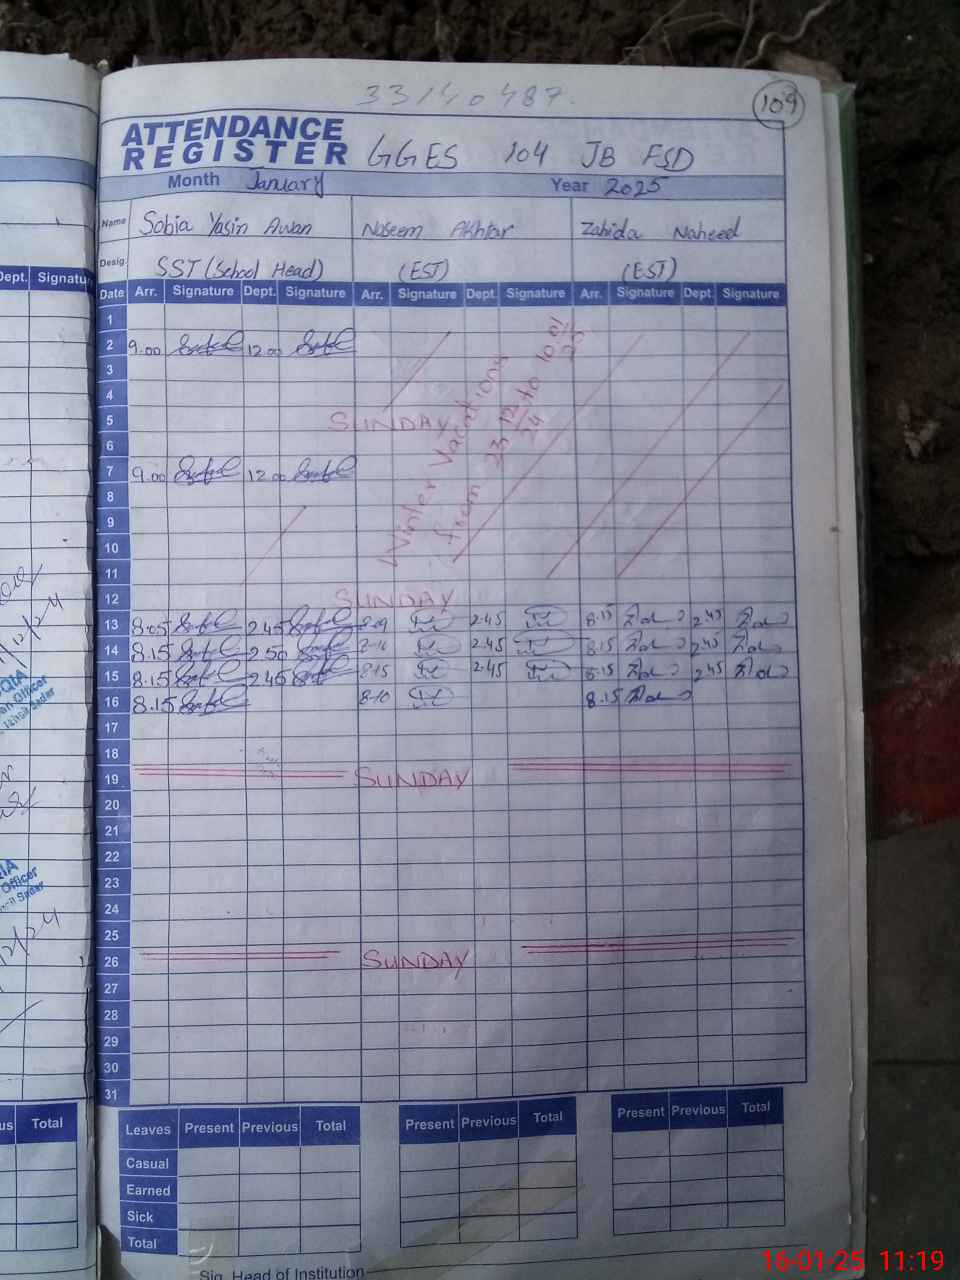 33140487.
109
ATTENDANCE
REGISTER GGES 104 JB FSD
Month January Year 2025
Name Sobia Yasin Awan Naseem Akhtar Zahida Naheed
Desig. SST (School Head) (EST) (EST)
Date Arr. Signature Dept. Signature Arr. Signature Dept. Signature Arr. Signature Dept. Signature
1
2 9.00 12.00
3
4
5 SUNDAY
6
7 9.00 12.00
8
9
10
11
Winter Vacations
from 23 12/24 to 10 01/25
12 SUNDAY
13 8.05 2.45 8-09 2.45 8.15 2.45
14 8.15 2.50 8-10 2.45 8.15 2.45
15 8.15 2.45 8.15 2.45 8.15 2.45
16 8.15 8.10 8.15
17
18
19 SUNDAY
20
21
22
23
24
25
26 SUNDAY
27
28
29
30
31
Leaves Present Previous Total Present Previous Total Present Previous Total
Casual
Earned
Sick
Total
Sig. Head of Institution
Dept. Signatu
Total
Officer
16-01-25 11:19